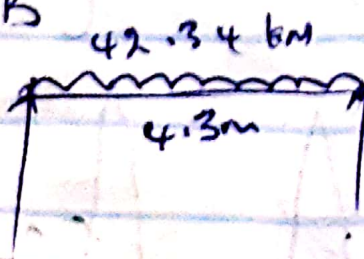 B
42.34 kM
4.3m